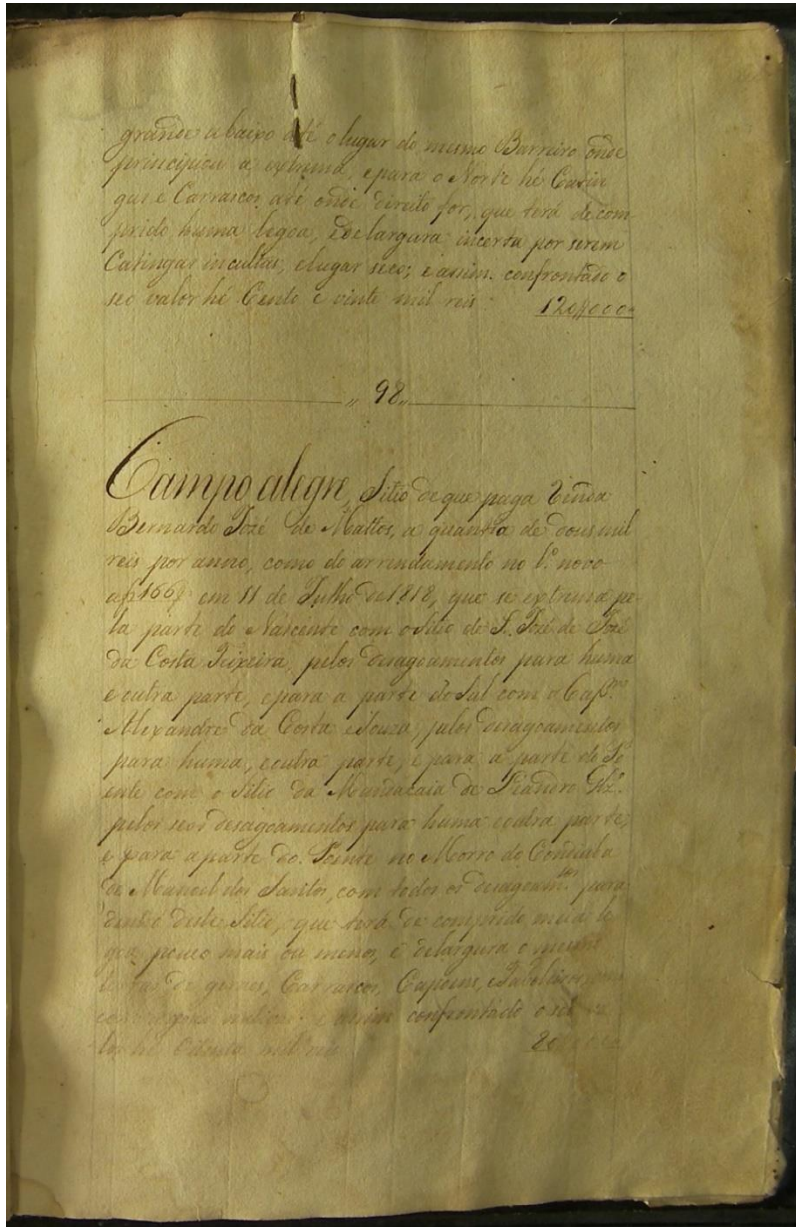 grande abaixo até o lugar do mesmo Barreiro onde
principiou a extrema, e para o Norte hé Catin
gas e Carrascos até onde direito for, que terá de com
prido huma legoa, e de largura incerta por serem
Catingas incultas, e lugar seco; e assim confrontado o
seo valor hé Cento e vinte mil reis 120//000
98
Campo alegre, Sitio de que paga Renda
Bernardo José de Mattos, a quantia de dous mil
reis por anno, como do arrendamento no L.º novo
a f 166 em 11 de Julho de 1818, que se extrema pe
la parte do Nascente com o Sitio de S. José de José
da Costa Teixeira, pelos desagoamentos para huma
e outra parte, e para a parte do Sul com o
Alexandre da Costa e Souza, pelos desagoamentos
para huma, e outra parte, e para a parte do Po
ente com o Sitio da de Leandro
pelos seos desagoamentos para huma e outra parte,
e para a parte do Poente no Morro do
de Manoel dos Santos, com todos os desagoam.tos para
dentro deste Sitio, que terá de comprido meia le
goa pouco mais ou menos, e de largura o mesmo
terras de geraes, Carrascos, Capoens, e Taboleiros,
e assim confrontado o seo va
lor hé Oitenta mil reis